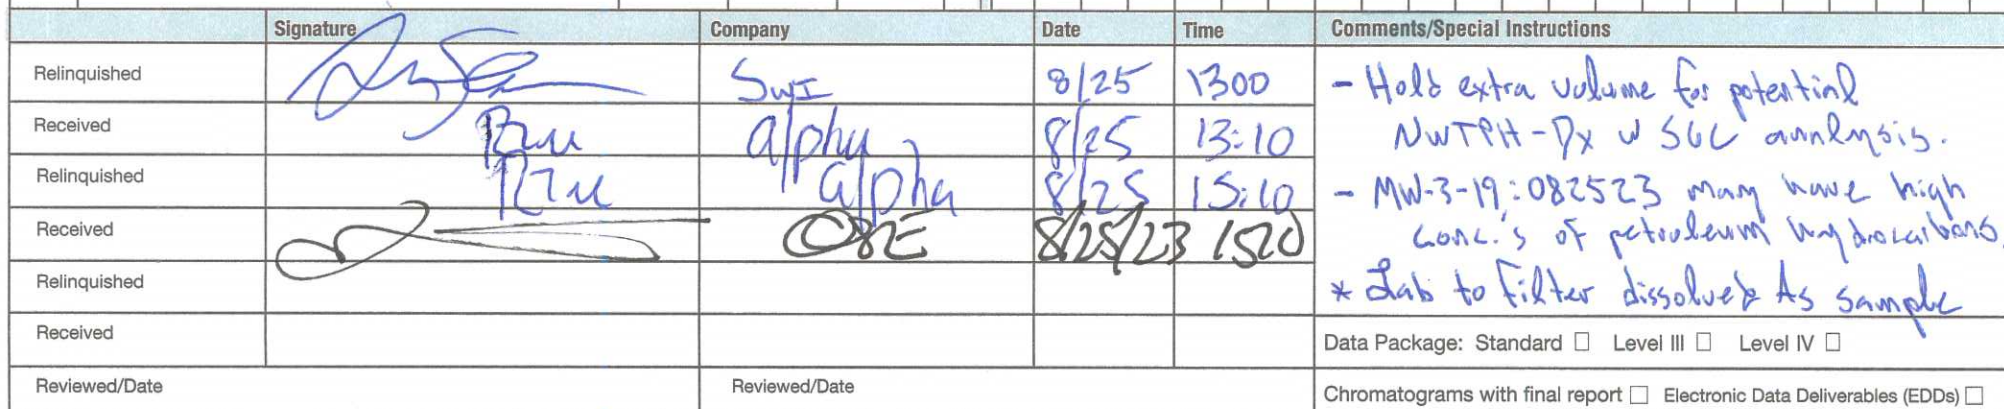 Signature Company Date Time Comments/Special Instructions
Relinquished SWI 8/25 1300
- Hold extra volume for potential
Received alpha 8/25 13:10
NWTPH-Dx w SGC analysis.
Relinquished alpha 8/25 15:10
- MW-3-19:082523 may have high
Received OBE 8/25/23 1520
conc.'s of petroleum hydrocarbons.
Relinquished
* Lab to filter dissolved As sample
Received
Data Package: Standard ☐ Level III ☐ Level IV ☐
Reviewed/Date Reviewed/Date
Chromatograms with final report ☐ Electronic Data Deliverables (EDDs) ☐